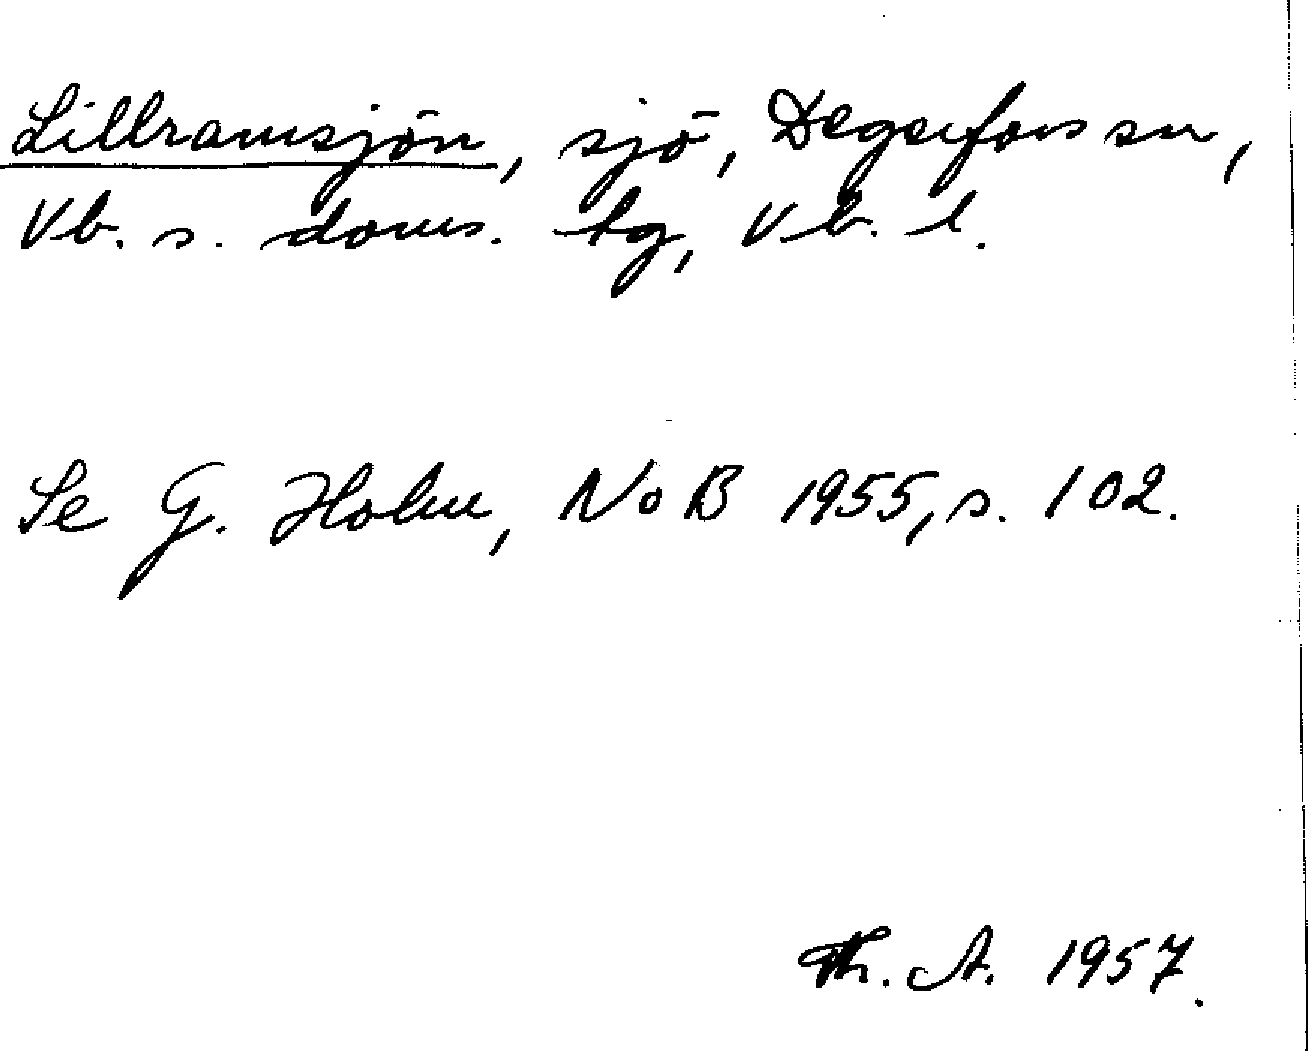 Lillramsjön, sjö, Degerfors sn,
Vb. s. doms. tg, Vb. l.
Se G. Holm, NoB 1955, s. 102.
Th. A. 1957.